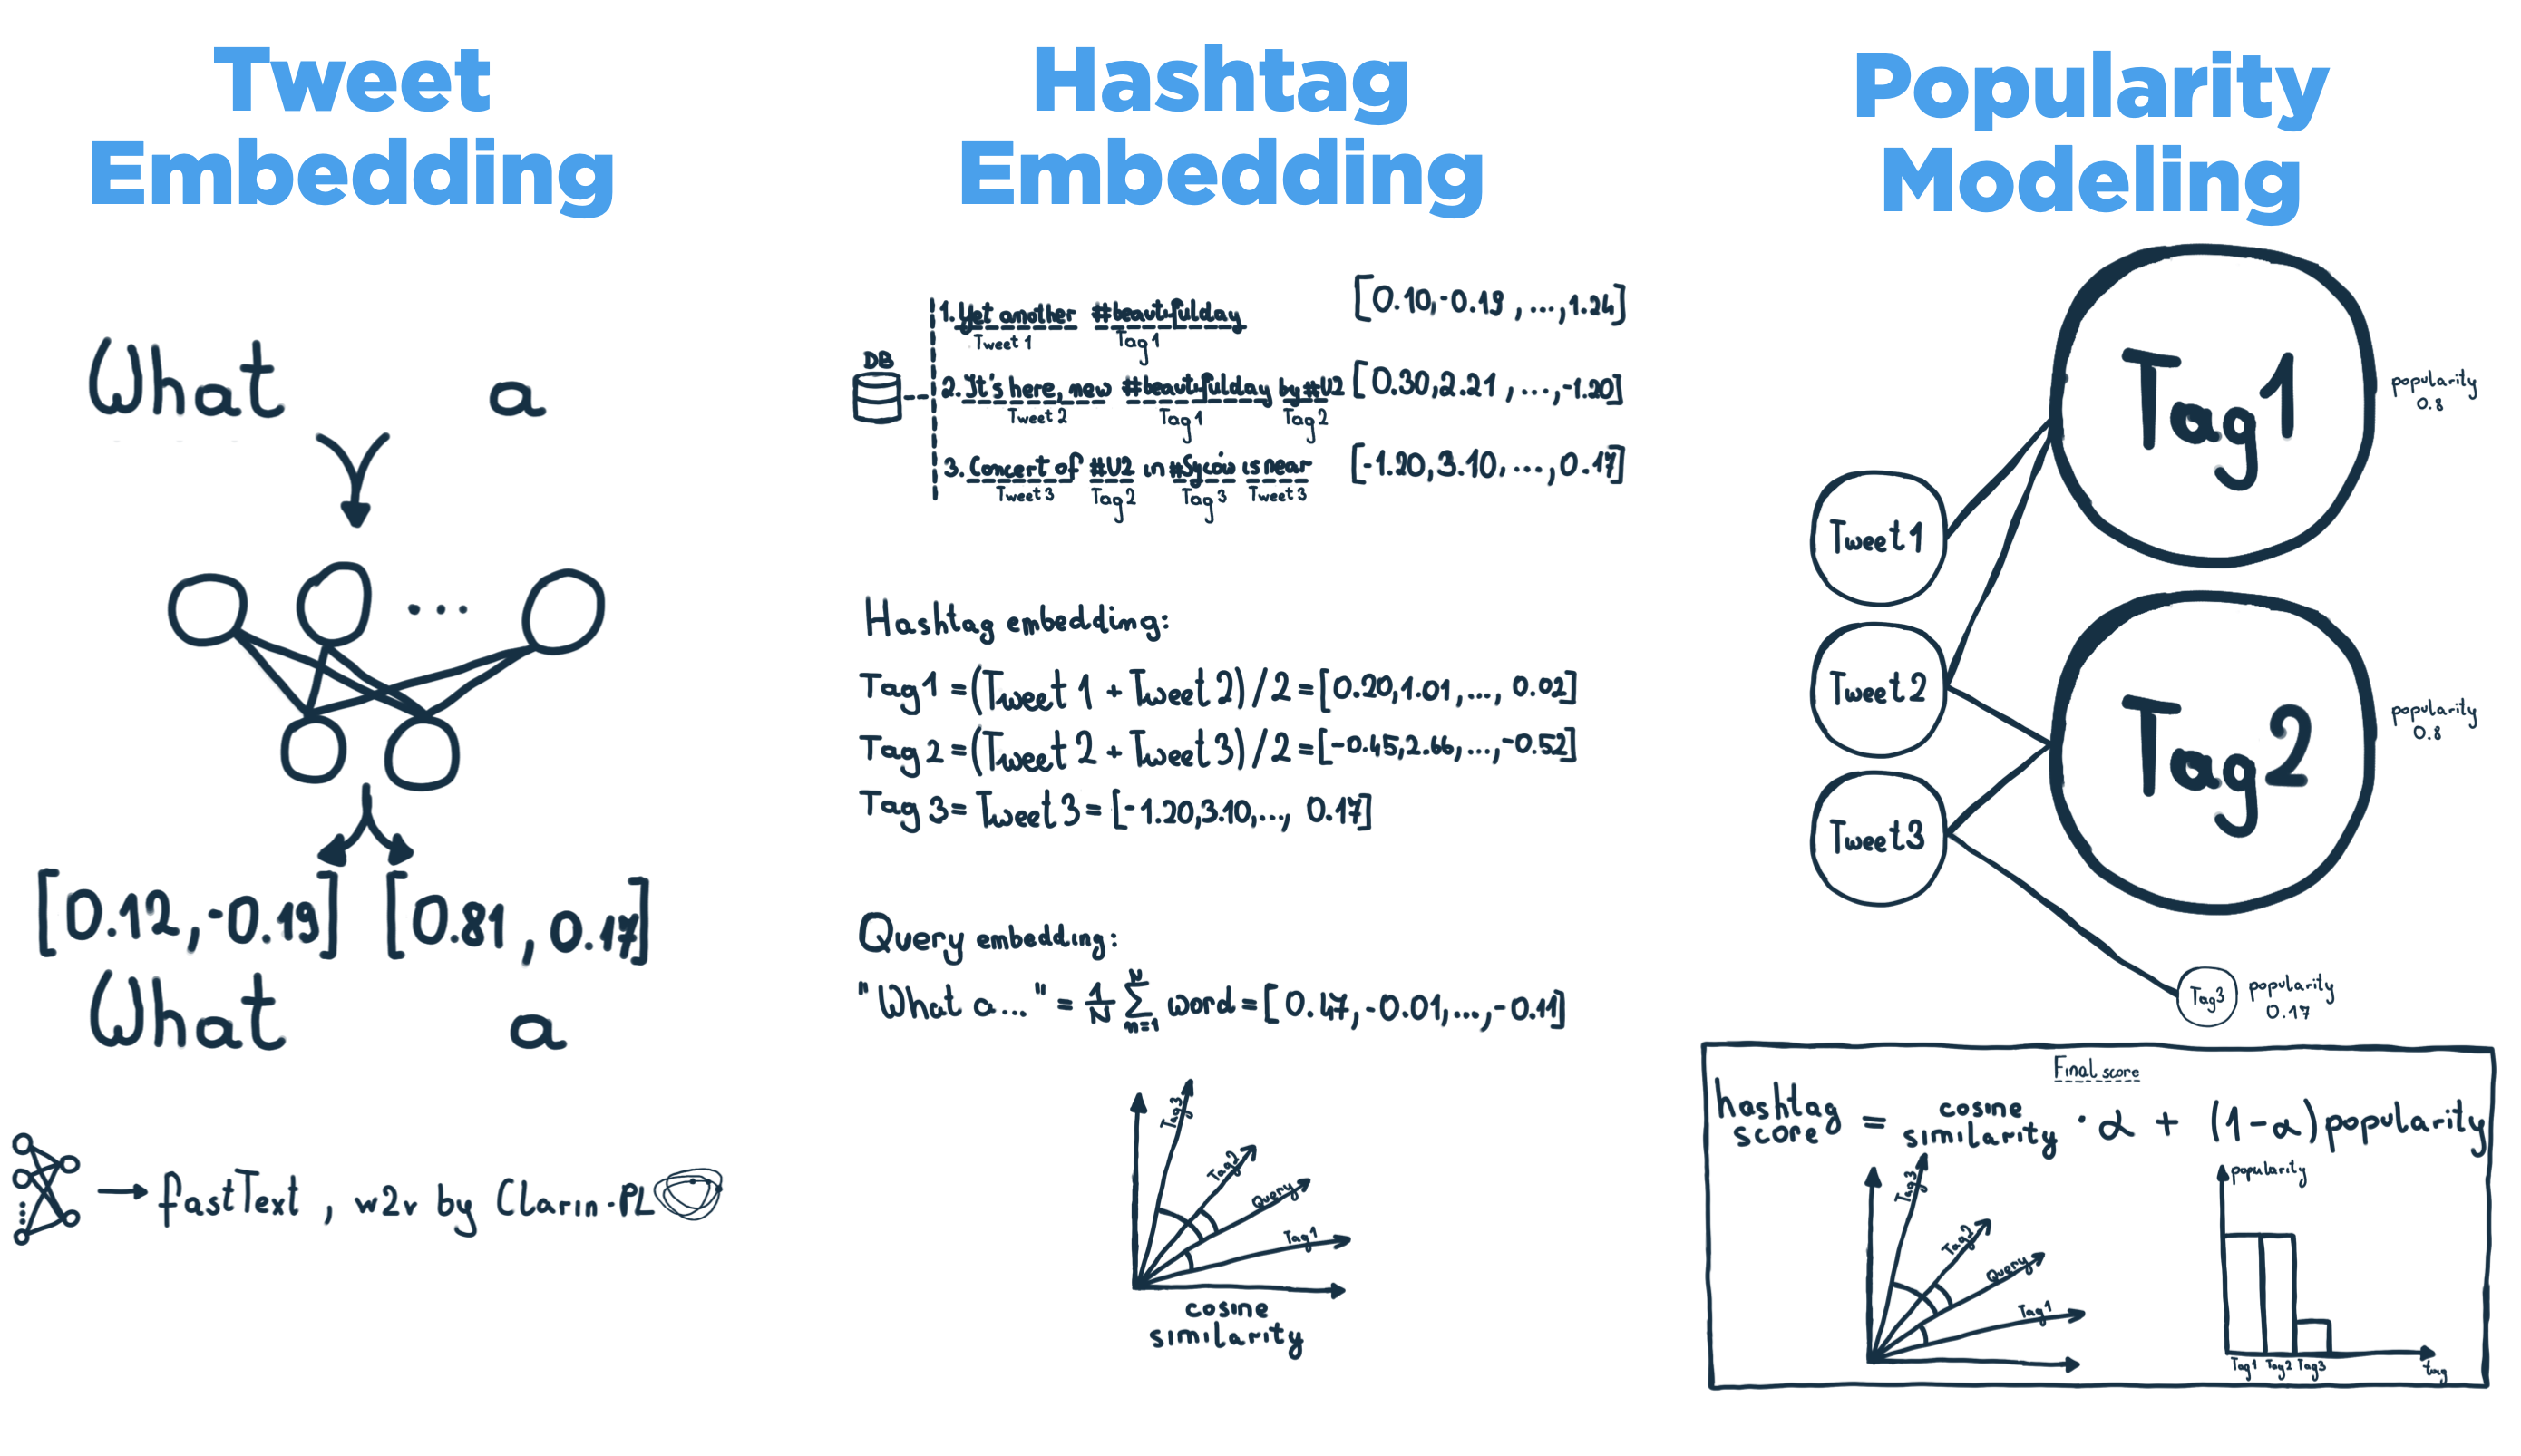 Tweet
Embedding
What a
[0.12,-0.19] [0.81, 0.17]
What a
fastText, w2v by Clarin-PL
Hashtag
Embedding
DB
1. Yet another #beautifulday [0.10,-0.19,...,1.24]
Tweet 1 Tag1
2. It's here, new #beautifulday by #U2 [0.30,2.21,...,-1.20]
Tweet 2 Tag1 Tag2
3. Concert of #U2 in #Syców is near [-1.20,3.10,...,0.17]
Tweet 3 Tag2 Tag3 Tweet 3
Hashtag embedding:
Tag1 = (Tweet 1 + Tweet 2)/2 = [0.20,1.01,..., 0.02]
Tag 2 = (Tweet 2 + Tweet 3)/2 = [-0.45,2.66,...,-0.52]
Tag 3 = Tweet 3 = [-1.20,3.10,..., 0.17]
Query embedding:
"What a..." = 1/N N∑n=1 word = [0.47,-0.01,...,-0.11]
Tag3
Tag2
Query
Tag1
cosine
similarity
Popularity
Modeling
Tag1
popularity
0.8
Tweet1
Tweet2
Tag2
popularity
0.8
Tweet3
Tag3
popularity
0.17
Final score
hashtag score = cosine similarity · α + (1-α) popularity
Tag3
Tag2
Query
Tag1
popularity
Tag1 Tag2 Tag3 tag